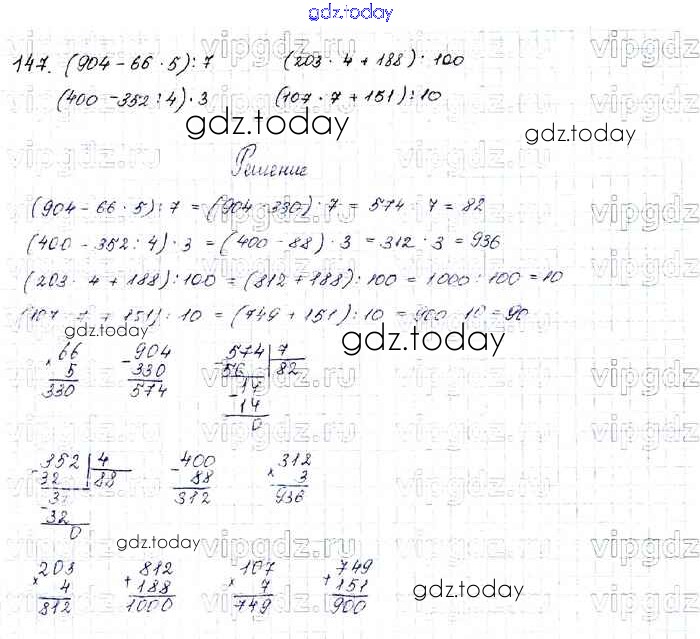 gdz.today
147. (904 - 66 · 5) : 7 (203 · 4 + 188) : 100
(400 - 352 : 4) · 3 (107 · 7 + 151) : 10
gdz.today gdz.today
Решение
(904 - 66 · 5) : 7 = (904 - 330) : 7 = 574 : 7 = 82
(400 - 352 : 4) · 3 = (400 - 88) · 3 = 312 · 3 = 936
(203 · 4 + 188) : 100 = (812 + 188) : 100 = 1000 : 100 = 10
(107 · 7 + 151) : 10 = (749 + 151) : 10 = 900 : 10 = 90
gdz.today gdz.today
66 904 574 7
× 5 - 330 - 56 82
330 574 14
- 14
0
352 4 400 312
- 32 88 - 88 × 3
32 312 936
- 32
0
gdz.today
203 812 107 749
× 4 + 188 × 7 + 151
812 1000 749 900
gdz.today
vipgdz.ru